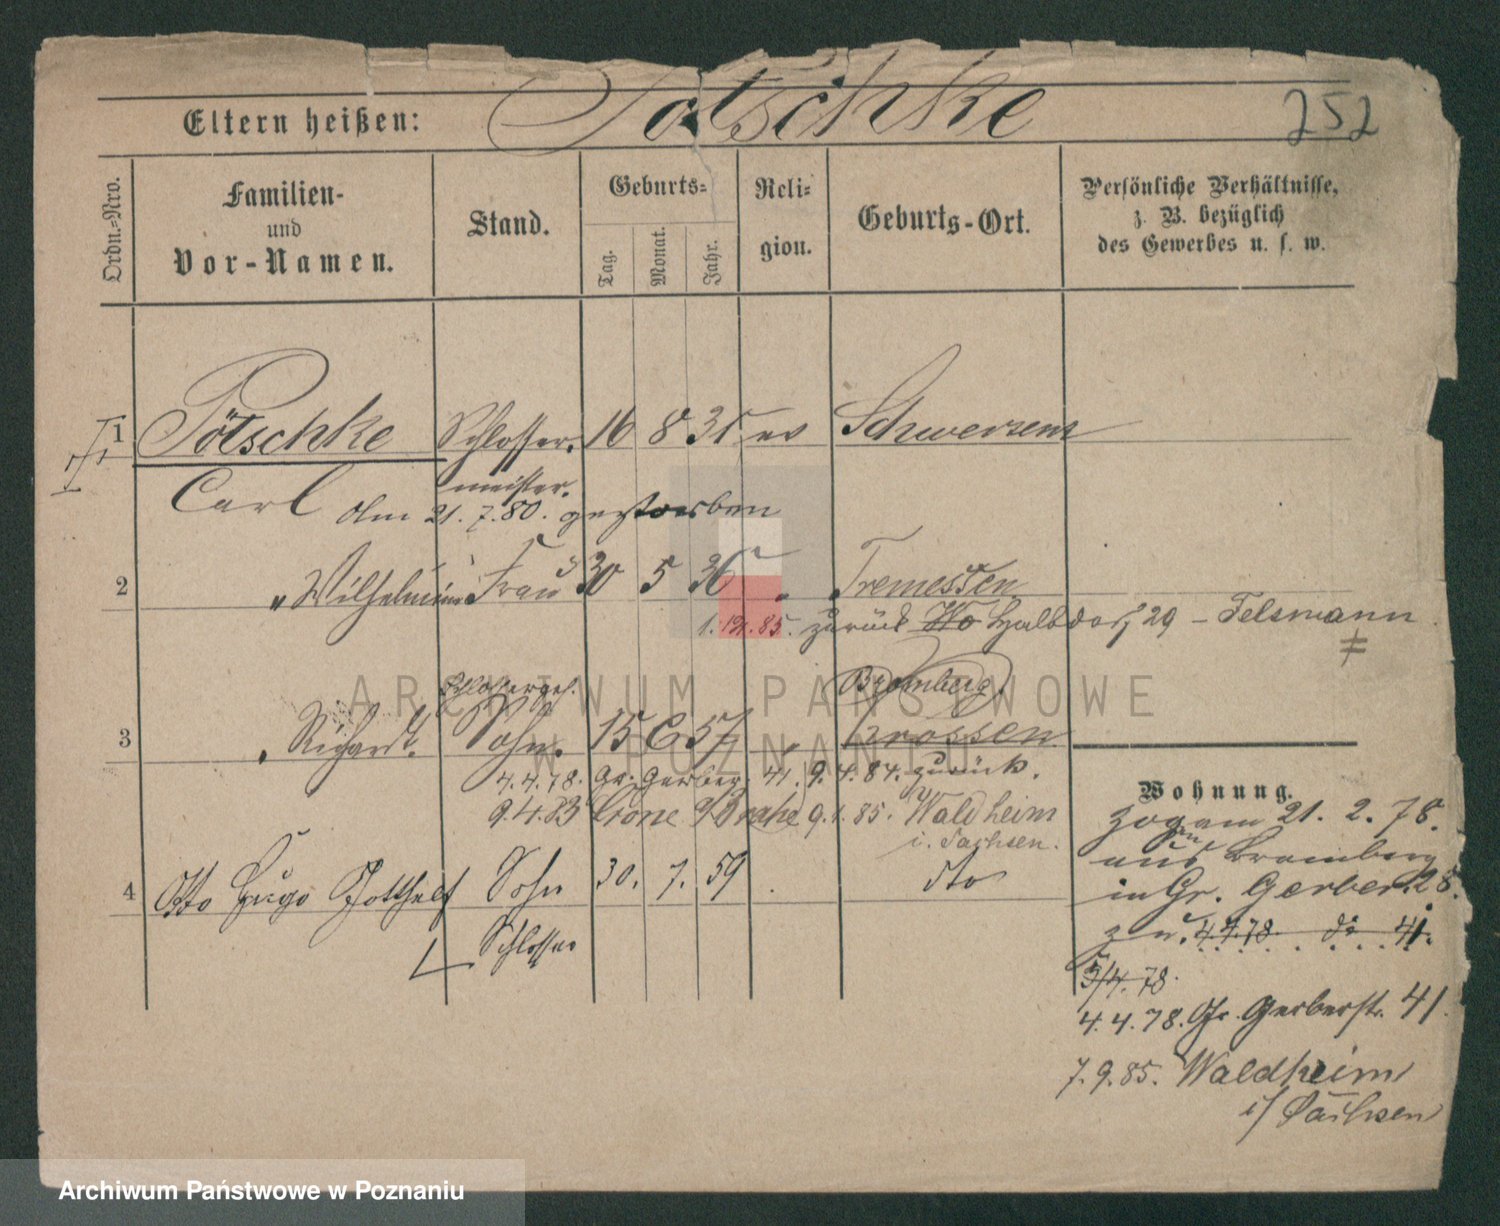 Eltern heißen: Pötschke 252
Ordn.-Nro.
Familien-
und
Vor-Namen.
Stand.
Geburts-
Tag.
Monat.
Jahr.
Reli-
gion.
Geburts-Ort.
Persönliche Verhältnisse,
z. B. bezüglich
des Gewerbes u. s. w.
1 Pötschke Schlosser- 16 8 35 ev Schwersenz
meister.
Carl Am 21.7.80. gestorben
2 " Wilhelmine Frau 30 5 36 " Tremessen
1. 12. 85. zurück Wo Halbdorf 29 - Felsmann
Schlosserges. Bromberg.
3 " Richard. Sohn. 15 6 57 " Crossen
4.4.78. Gr. Gerber 41. 9.4.84. zurück.
9.4.83 Crone a/Brahe 9.1.85. Waldheim
i. Sachsen.
4 Otto Hugo Gotthelf Sohn 30. 7. 59 dto
Schlosser
Wohnung.
zog am 21. 2. 78.
aus Bromberg
in Gr. Gerber. 28.
zu. 4.4.78. do 41.
5/4. 78.
4. 4. 78. Gr. Gerberstr. 41.
7. 9. 85. Waldheim
i/ Sachsen
ARCHIWUM PAŃSTWOWE
W POZNANIU
Archiwum Państwowe w Poznaniu